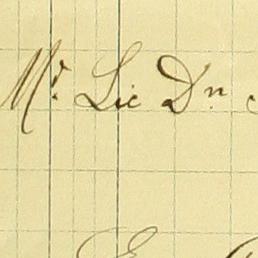 Mr. Lic Dn